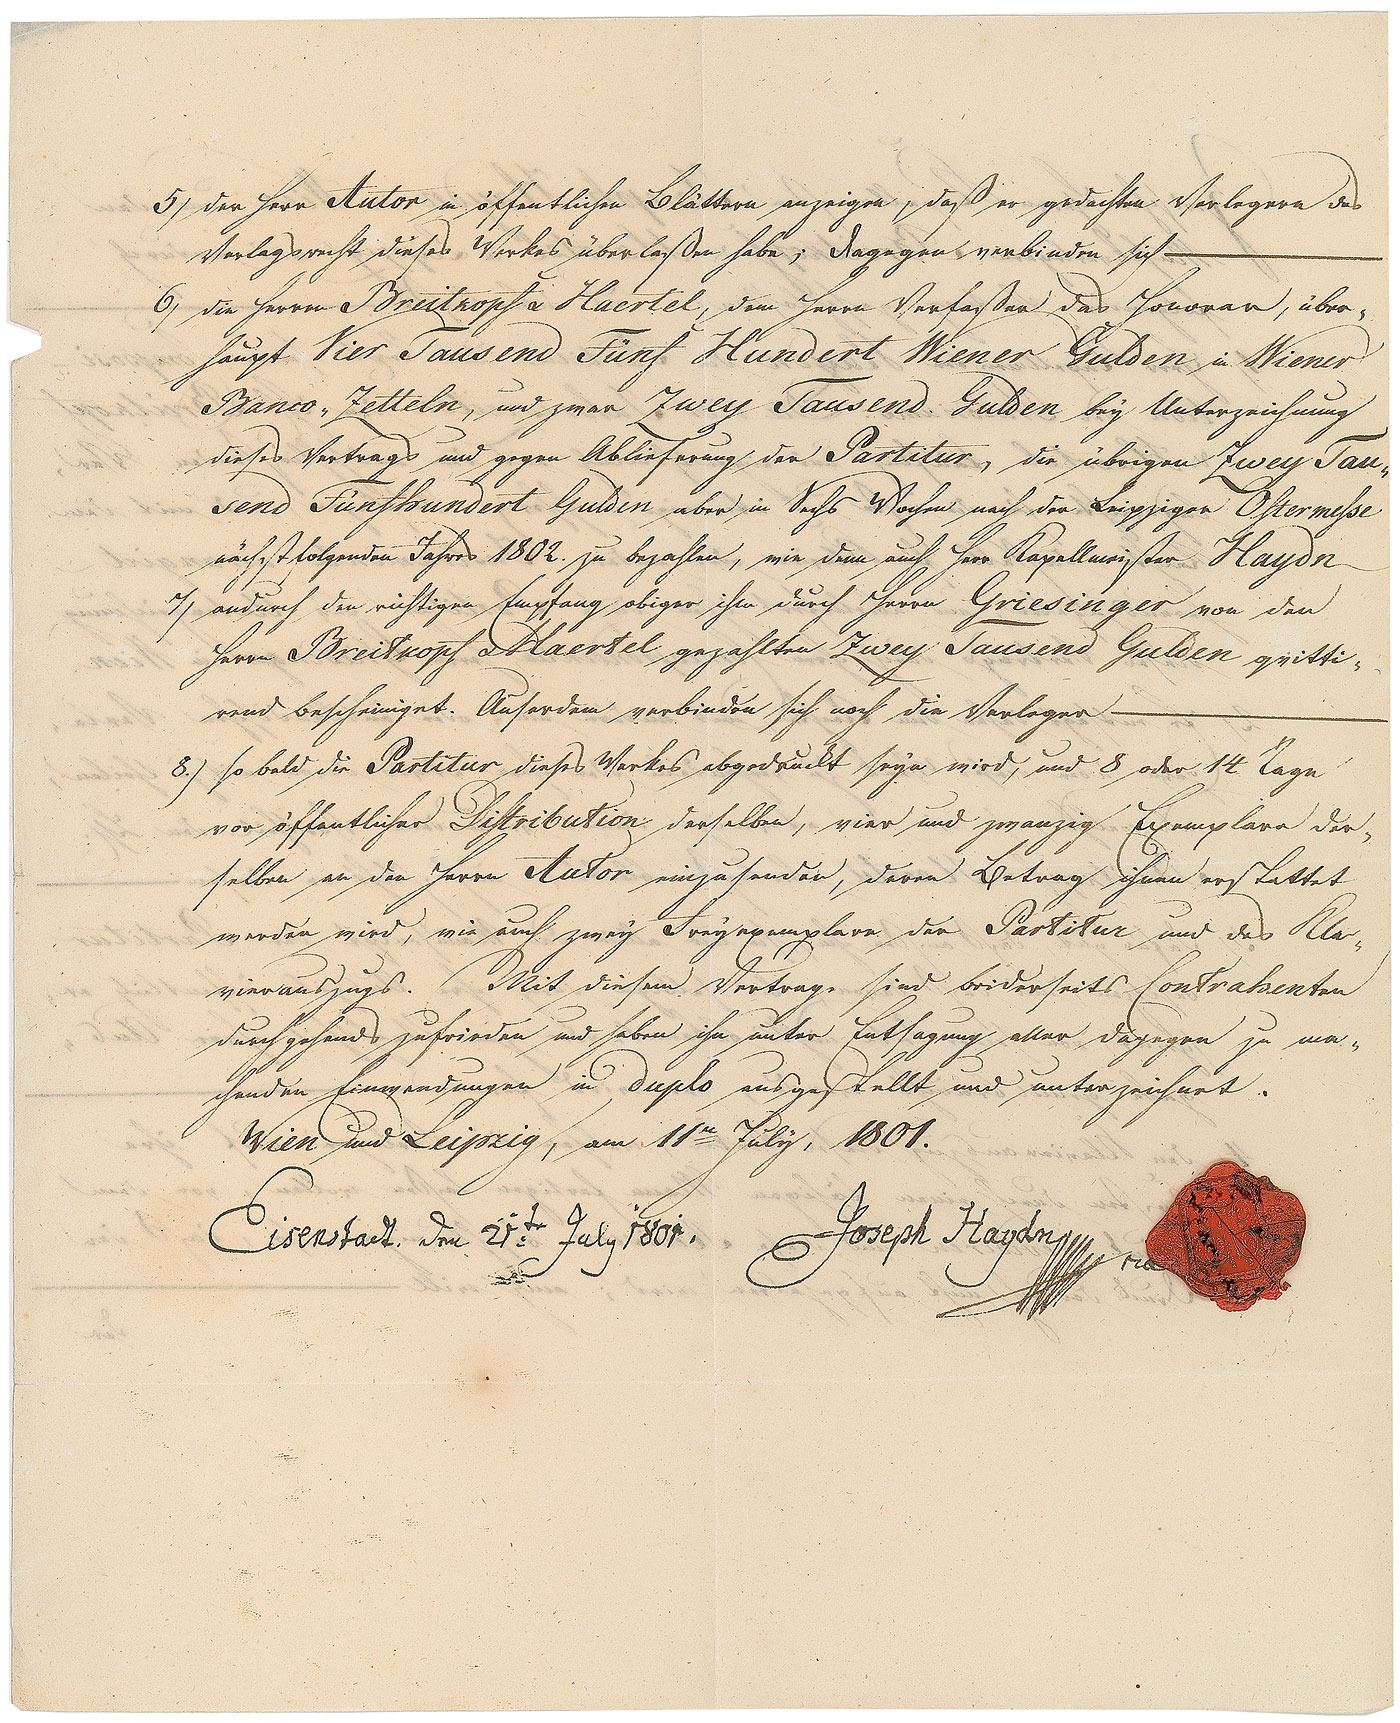 5) der Herr Autor in öffentlichen Blättern anzeigen, daß er gedachten Verlegern das
Verlagsrecht dieses Werkes überlaßen habe; dagegen verbinden sich
6) die Herrn Breitkopf & Haertel, dem Herrn Verfaßer das Honorar, über-
haupt Vier Tausend Fünf Hundert Wiener Gulden in Wiener
Banco-Zetteln, und zwar Zwey Tausend Gulden bey Unterzeichnung
dieses Vertrags und gegen Ablieferung der Partitur, die übrigen Zwey Tau-
send Fünfhundert Gulden aber in Sechs Wochen nach der Leipziger Ostermesse
nächstfolgenden Jahres 1802. zu bezahlen, wie denn auch Herr Kapellmeister Haydn
7) andurch den richtigen Empfang obiger ihm durch Herrn Griesinger von den
Herrn Breitkopf & Haertel gezahlten Zwey Tausend Gulden quitti-
rend bescheiniget. Auserdem verbinden sich noch die Verleger
8.) so bald die Partitur dieses Werkes abgedruckt seyn wird, und 8 oder 14 Tage
vor öffentlicher Distribution derselben, vier und zwanzig Exemplare der-
selben an den Herrn Autor einzusenden, deren Betrag ihnen erstattet
werden wird, wie auch zwey Freyexemplare der Partitur und des Kla-
vierauszugs. Mit diesem Vertrage sind beiderseits Contrahenten
durchgehends zufrieden und haben ihn unter Entsagung aller dagegen zu ma-
chenden Einwendungen in duplo ausgestellt und unterzeichnet.
Wien und Leipzig, am 11n July, 1801.
Eisenstadt. den 21ten July 1801.
Joseph Haydn